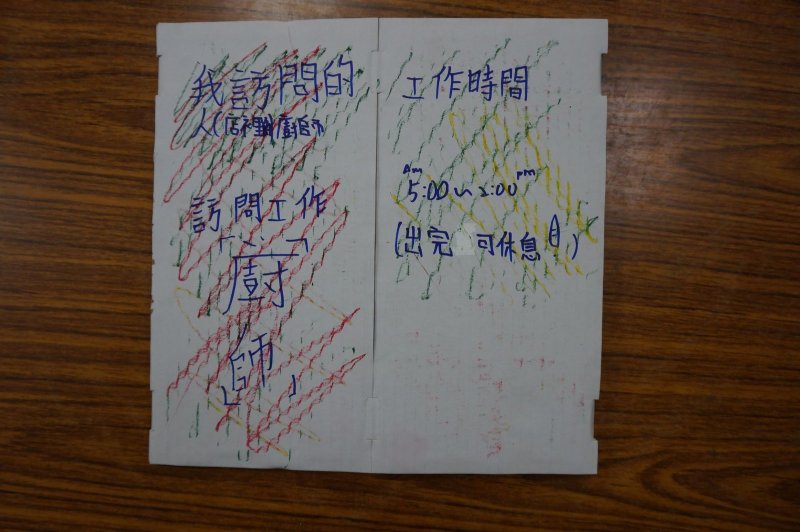 我訪問的
人(店裡的廚師
訪問工作
「廚
師」
工作時間
Am 5:00~2:00 pm
(出完 可休息)